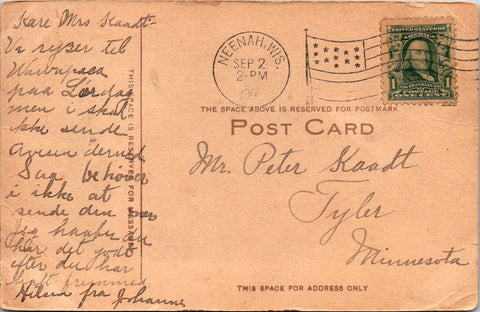 Kære Mrs Kaadt-
Vi rejser til
Waupaca
paa Lørdag
men i skal
ikke sende
Avisen derned
Saa behøver
i ikke at
sende den mer
Jeg haaber du
har det godt
efter du har
haft
Hilsen fra Johanne
THIS SPACE IS RESERVED FOR MESSAGE
NEENAH, WIS.
SEP 2
2-PM
THE SPACE ABOVE IS RESERVED FOR POSTMARK
POST CARD
Mr. Peter Kaadt
Tyler
Minnesota
THIS SPACE FOR ADDRESS ONLY